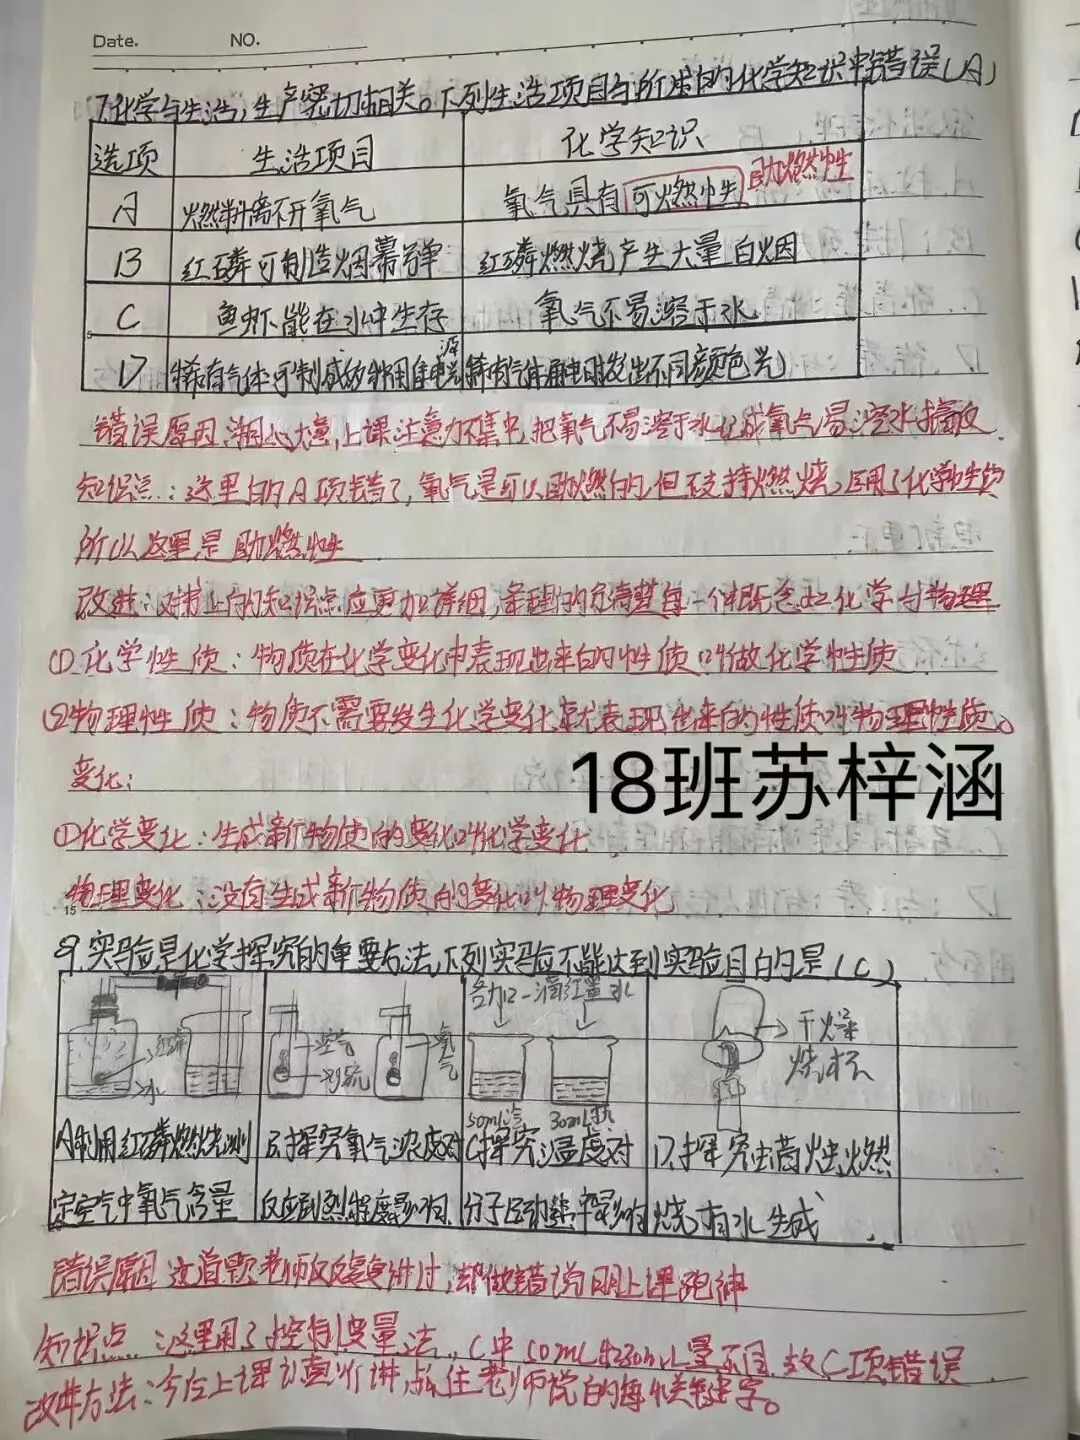 Date. NO.
7.化学与生活,生产密切相关。下列生活项目与所述的化学知识中错误(A)
选项 生活项目 化学知识
A 燃料离不开氧气 氧气具有可燃性 助燃性
B 红磷可制造烟幕弹 红磷燃烧产生大量白烟
C 鱼虾能在水中生存 氧气不易溶于水
D 稀有气体可制成多种用途电光源 稀有气体通电时发出不同颜色光
错误原因:粗心大意,上课注意力不集中,把氧气不易溶于水记成氧气易溶水搞反
知识点:这里的A项错了,氧气是可以助燃的,但支持燃烧,用了化学性质
所以这里是助燃性
改进:对书上的知识点应更加详细,条理的完清楚每一个概念如化学与物理
(1)化学性质:物质在化学变化中表现出来的性质叫做化学性质
(2)物理性质:物质不需要发生化学变化就表现出来的性质叫物理性质。
变化:
18班苏梓涵
①化学变化:生成新物质的变化叫化学变化
物理变化:没有生成新物质的变化叫物理变化
15
9.实验是化学探究的重要方法,下列实验不能达到实验目的是(C)
红磷
水
空气
硫
氧气
各加一滴红墨水
50mL冷
30mL热
干燥
烧杯
A利用红磷燃烧测
定空气中氧气含量
B.探究氧气浓度对
反应剧烈程度影响
C探究温度对
分子运动速率影响
D.探究蜡烛燃
烧有水生成
错误原因:这道题老师反反复复讲过,却做错说明上课跑神
知识点:这里用了控制变量法,C中50mL和30mL量不同,故C项错误
改进方法:今后上课认真听讲,抓住老师说的每个关键字。